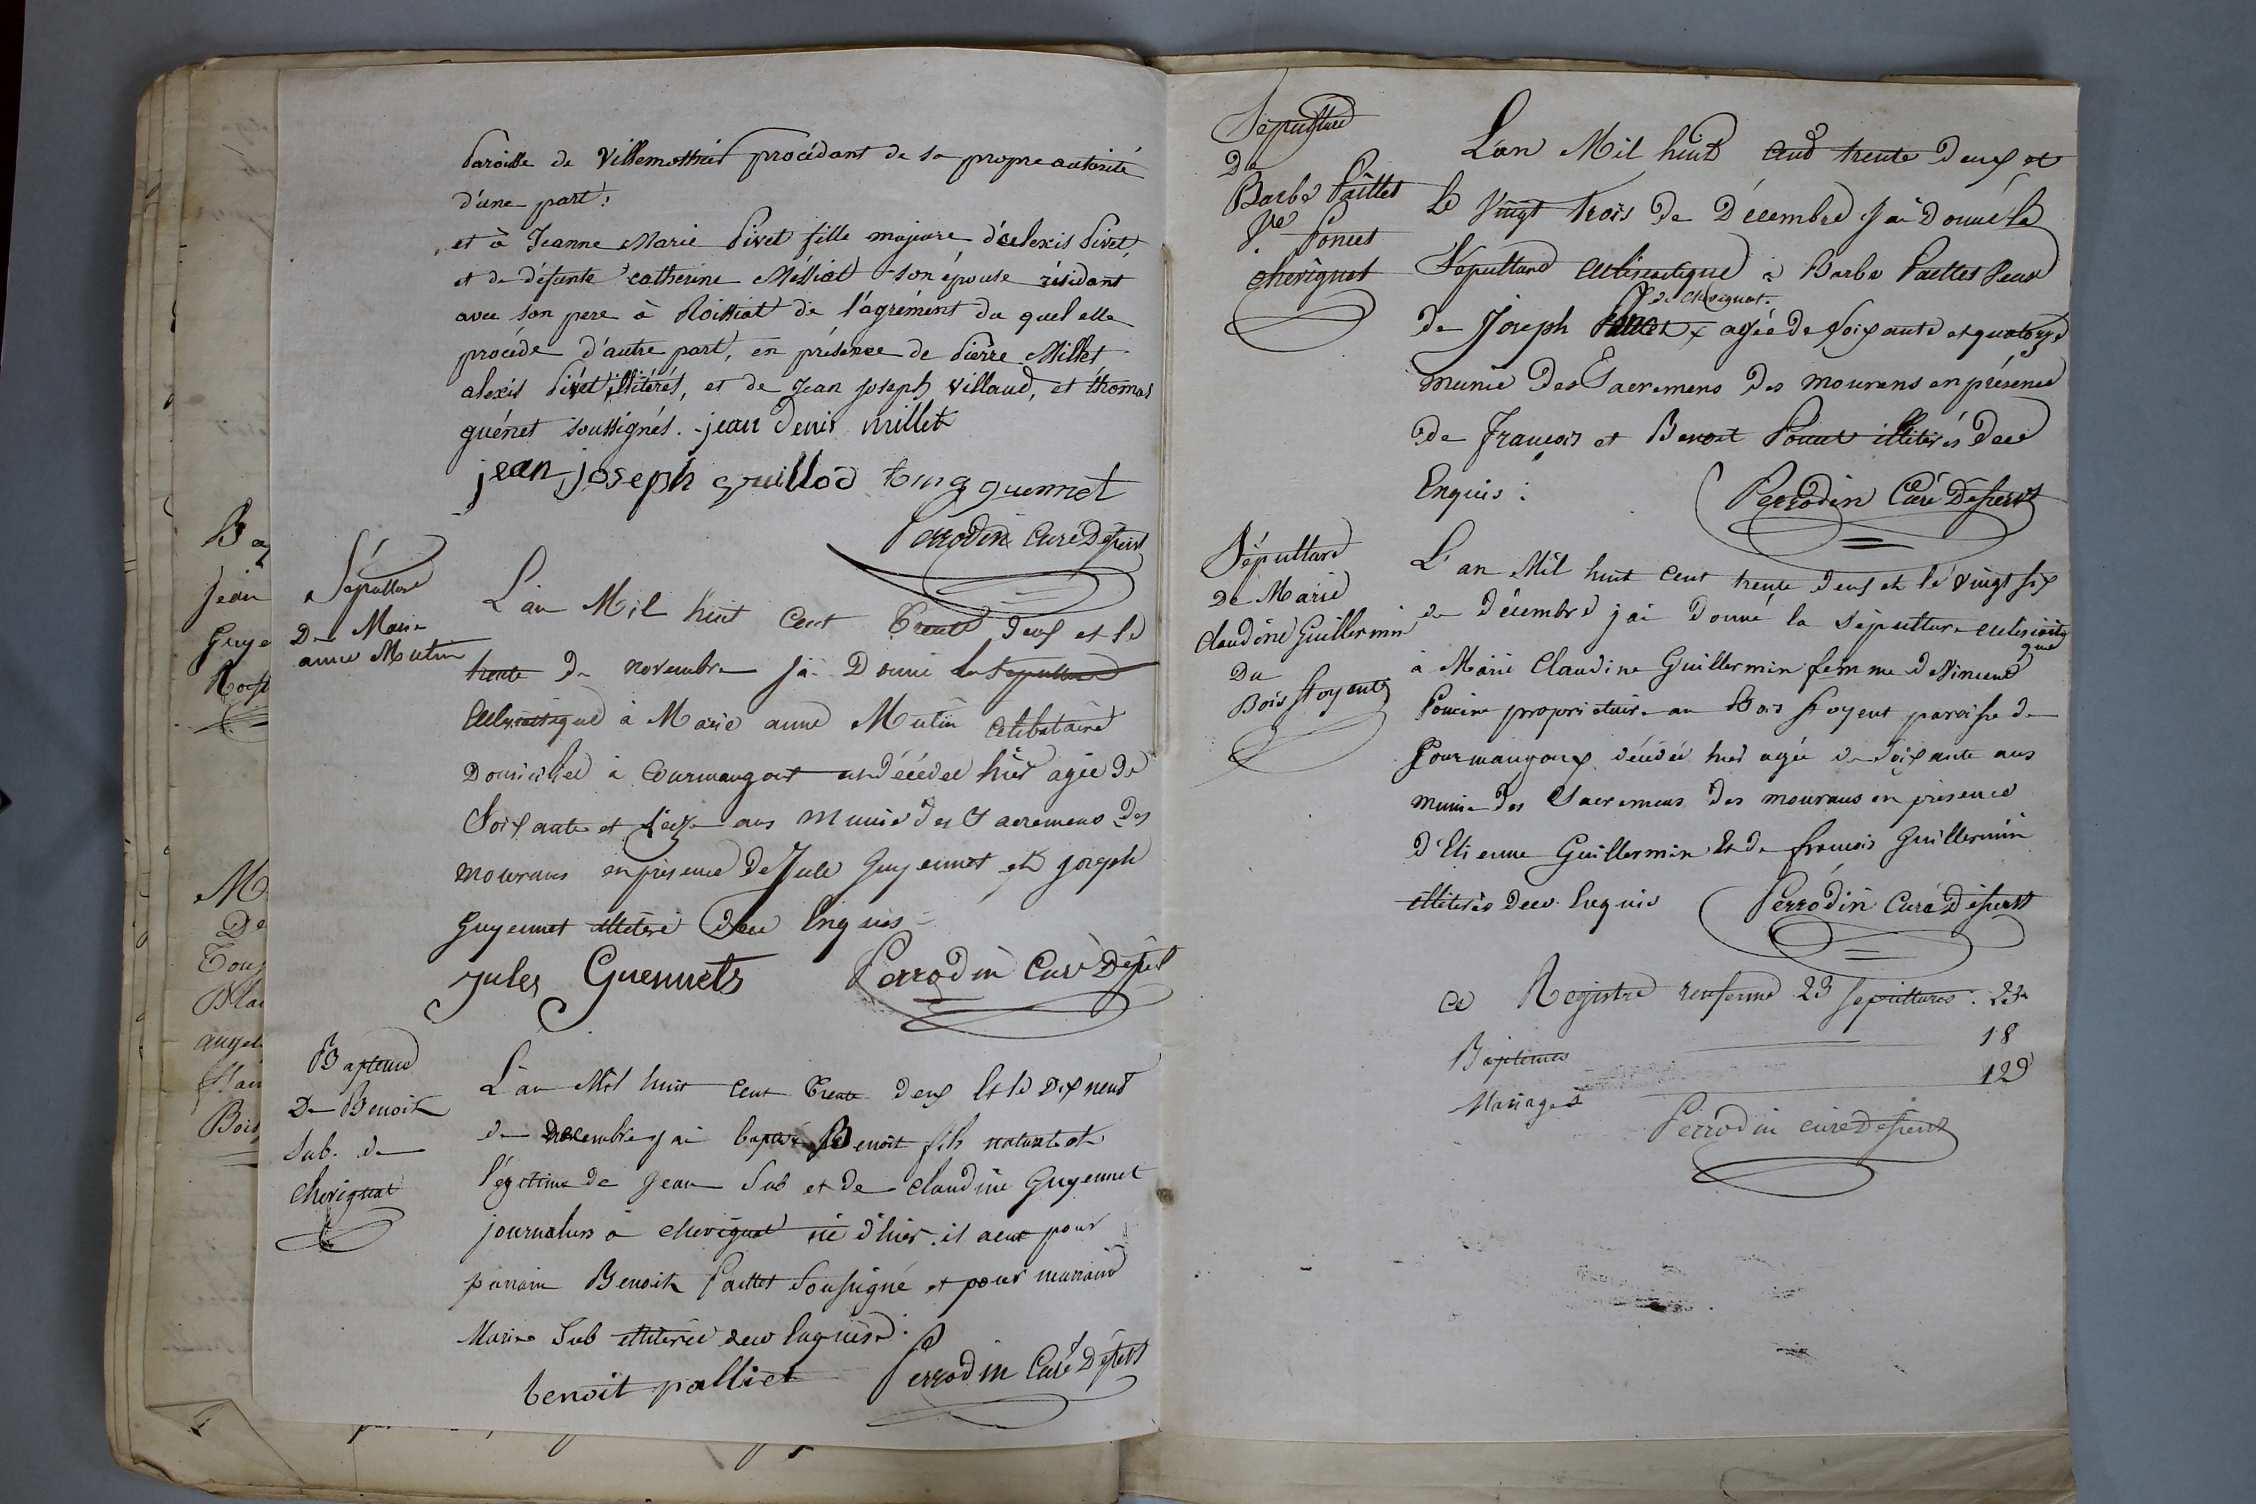 paroisse de Villemotier procédant de sa propre autorité
d'une part:
et à Jeanne Marie Pivet fille majeure d'alexis Pivet
et de défunte catherine Mélliat son épouse résidant
avec son pere à Roissiat de l'agrément du quel elle
procéde d'autre part, en présence de pierre Millet
alexis Pivet illitérés, et de Jean joseph Villaud, et thomas
guénet soussignés. jean Denis millet
jean joseph guillod toma guennet
Perrodin Curé Desserv
Sépulture
De Marie
anne Mutin
L'an Mil huit Cent Trente deux et le
trente de novembre jai Donné la Sepulture
Eclesiastique à Marie anne Mutin Celibataire
Domiciliee à Courmangoux décédée hier agée de
Soixante et seize ans Munie des Sacremens des
mourans en présence de Jule Guyennet et joseph
Guyennet illitéré de ce Enquis
Jules Guennets Perrodin Curé Dessert
Bapteme
De Benoit
Sub. de
Chevignat
L'an Mil huit Cent Trente deux et le dix neuf
de decembre jai baptisé Benoit fils naturel et
légitime de Jean Sub et de Claudine Guyennet
journaliers à Chevignat né d'hier. il a eut pour
parrain Benoit Paillet Soussigné et pour marraine
Marie Sub illiterée de ce Enquise.
benoit palliet Perrodin Curé Desserv
Sépulture
De
Barbe Paillet
Ve Poncet
Chevignat
L'an Mil huit cent trente deux et
le Vingt trois de Décembre J'ai Donné la
Sépulture Eclésiastique à Barbe Paillet Veuve
de chevignat.
de Joseph Poncet x agée de soixante et quatorze
munie des Sacremens des mourans en présence
de François et Benoit Poncet illitérés de ce
Enquis: Perrodin Curé Desserv
Sépulture
De Marie
Claudine Guillermin
Du
Bois Foyent
L'an Mil huit Cent trente deux et le vingt six
de décembre jai Donné la sépulture eclésiasti
que
à Marie Claudine Guillermin femme de Vincent
Poncin proprietaire au Bois Foyent paroisse de
Courmangoux décédée hier agée de soixante ans
munie des Sacremens des mourans en presence
d'Etienne Guillermin et de françois Guillermin
illiterés de ce Enquis Perrodin Curé Desserv
Ce Registre renferme 23 Sépultures. 23
Baptemes 18
Mariages 12
Perrodin curé Desserv
B
Jean
Guye
M
De
ange
Bois